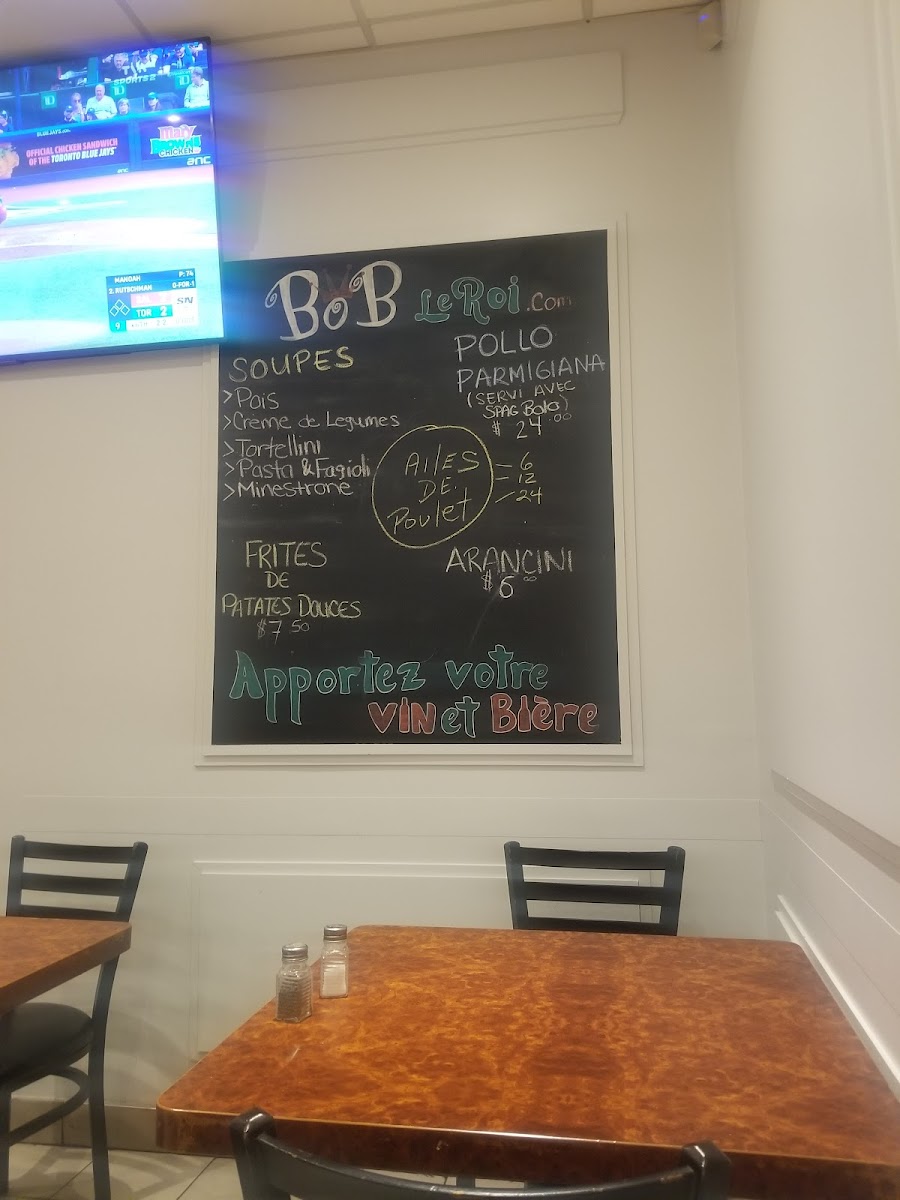 SPORTS
TD
TD
TD
BLUEJAYS.COM
OFFICIAL CHICKEN SANDWICH
OF THE TORONTO BLUE JAYS
Mary
BROWN'S
CHICKEN
MANOAH P: 74
2. RUTSCHMAN 0-FOR-1
BAL 2
TOR 2
SN
9
BoB LeRoi.com
SOUPES
>Pois
>Crème de Legumes
>Tortellini
>Pasta & Fagioli
>Minestrone
POLLO
PARMIGIANA
(SERVI AVEC
SPAG Bolo)
$ 24.00
AILES
DE
Poulet
6
12
24
FRITES
DE
PATATES DOUCES
$7 50
ARANCINI
$6 00
Apportez votre
VIN et Bière